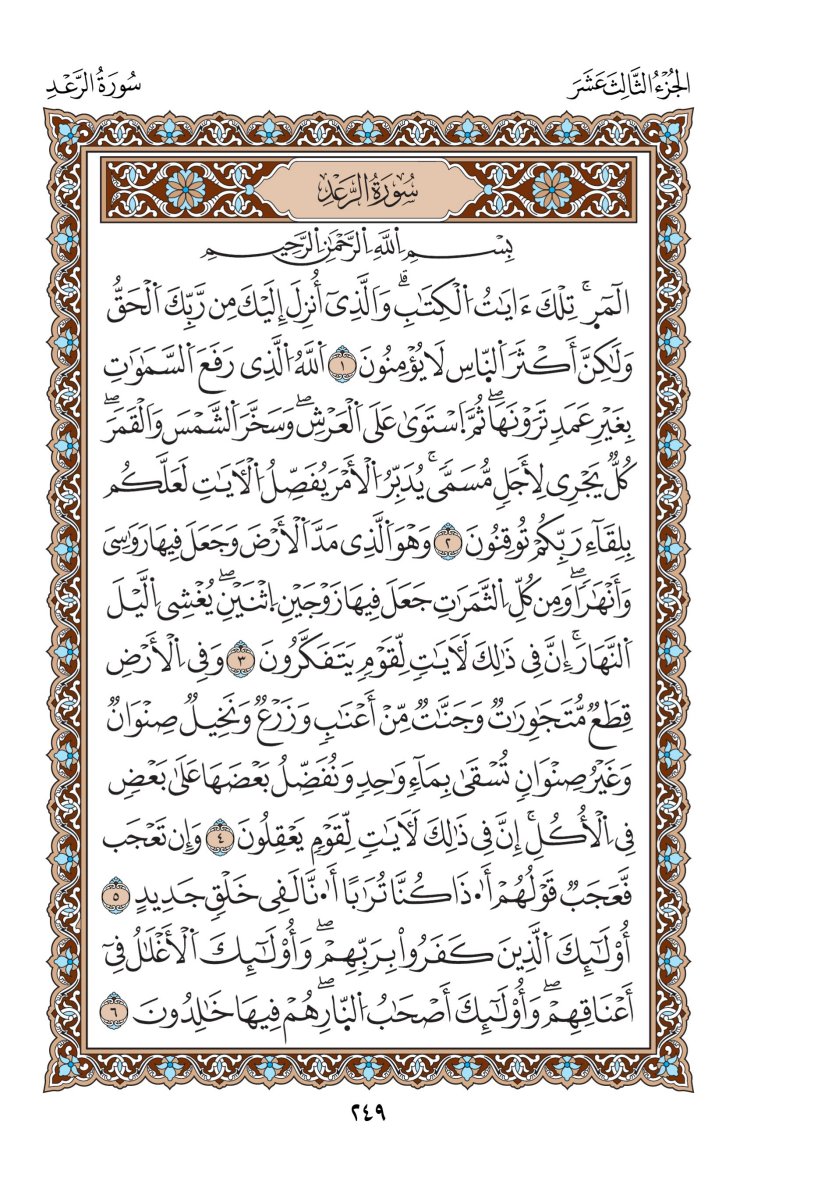 الجُزْءُ الثَّالِثَ عَشَرَ
سُورَةُ الرَّعْدِ
سُورَةُ الرَّعْدِ
بِسْمِ اِللَّهِ اِلرَّحْمَٰنِ اِلرَّحِيمِ
الٓمٓرۚ تِلْكَ ءَايَٰتُ اُلْكِتَٰبِۗ وَالَّذِىٓ أُنزِلَ إِلَيْكَ مِن رَّبِّكَ اَلْحَقُّ
وَلَٰكِنَّ أَكْثَرَ اَلنَّاسِ لَا يُؤْمِنُونَ ١ اَللَّهُ اُلَّذِى رَفَعَ اَلسَّمَٰوَٰتِ
بِغَيْرِ عَمَدٍ تَرَوْنَهَاۖ ثُمَّ اَسْتَوَىٰ عَلَى اَلْعَرْشِۖ وَسَخَّرَ اَلشَّمْسَ وَالْقَمَرَۖ
كُلٌّ يَجْرِى لِأَجَلٍ مُّسَمًّىۚ يُدَبِّرُ اُلْأَمْرَ يُفَصِّلُ اُلْأٓيَٰتِ لَعَلَّكُم
بِلِقَآءِ رَبِّكُمْ تُوقِنُونَ ٢ وَهْوَ اَلَّذِى مَدَّ اَلْأَرْضَ وَجَعَلَ فِيهَا رَوَٰسِىَ
وَأَنْهَٰرًاۖ وَمِن كُلِّ اِلثَّمَرَٰتِ جَعَلَ فِيهَا زَوْجَيْنِ اِثْنَيْنِۖ يُغْشِى اِلَّيْلَ
اَلنَّهَارَۚ إِنَّ فِى ذَٰلِكَ لَأٓيَٰتٍ لِّقَوْمٍ يَتَفَكَّرُونَ ٣ وَفِى اِلْأَرْضِ
قِطَعٌ مُّتَجَٰوِرَٰتٌ وَجَنَّٰتٌ مِّنْ أَعْنَٰبٍ وَزَرْعٌ وَنَخِيلٌ صِنْوَانٌ
وَغَيْرُ صِنْوَانٍ تُسْقَىٰ بِمَآءٍ وَٰحِدٍ وَنُفَضِّلُ بَعْضَهَا عَلَىٰ بَعْضٍ
فِى اِلْأُكُلِۚ إِنَّ فِى ذَٰلِكَ لَأٓيَٰتٍ لِّقَوْمٍ يَعْقِلُونَ ٤ وَإِن تَعْجَب
فَّعَجَبٌ قَوْلُهُمْ أَ.ذَا كُنَّا تُرَٰبًا أَ.نَّا لَفِى خَلْقٍ جَدِيدٍ ٥
أُوْلَٰٓئِكَ اَلَّذِينَ كَفَرُواْ بِرَبِّهِمْۖ وَأُوْلَٰٓئِكَ اَلْأَغْلَٰلُ فِىٓ
أَعْنَاقِهِمْۖ وَأُوْلَٰٓئِكَ أَصْحَٰبُ اُلنَّارِۖ هُمْ فِيهَا خَٰلِدُونَ ٦
٢٤٩